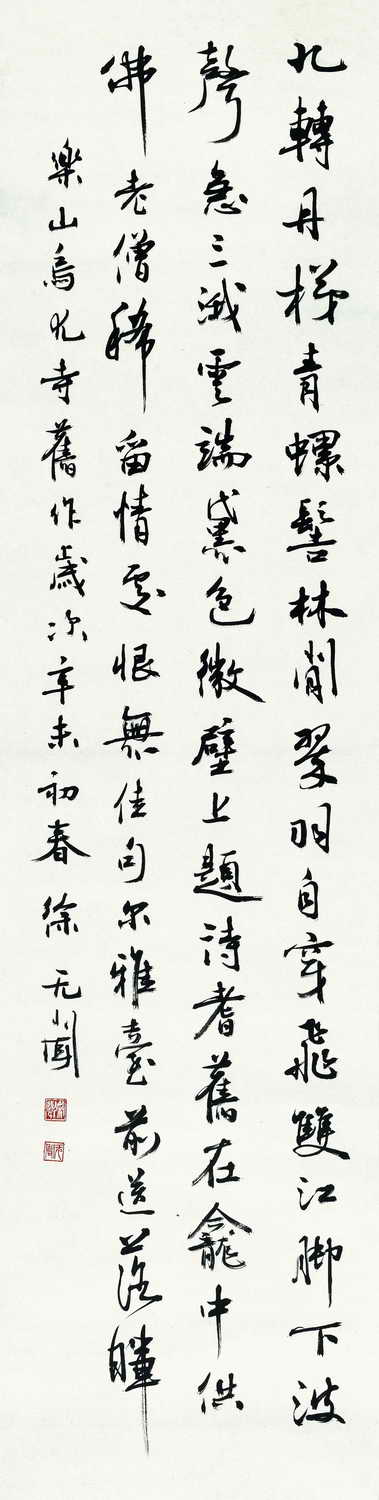 九轉丹梯青螺髻林間翠羽自穿飛雙江脚下波
聲急三峨雲端黛色微壁上題詩耆舊在龕中供
佛老僧稀留情處恨無佳句尔雅臺前送落暉
樂山烏尤寺舊作歲次辛未初春徐无聞